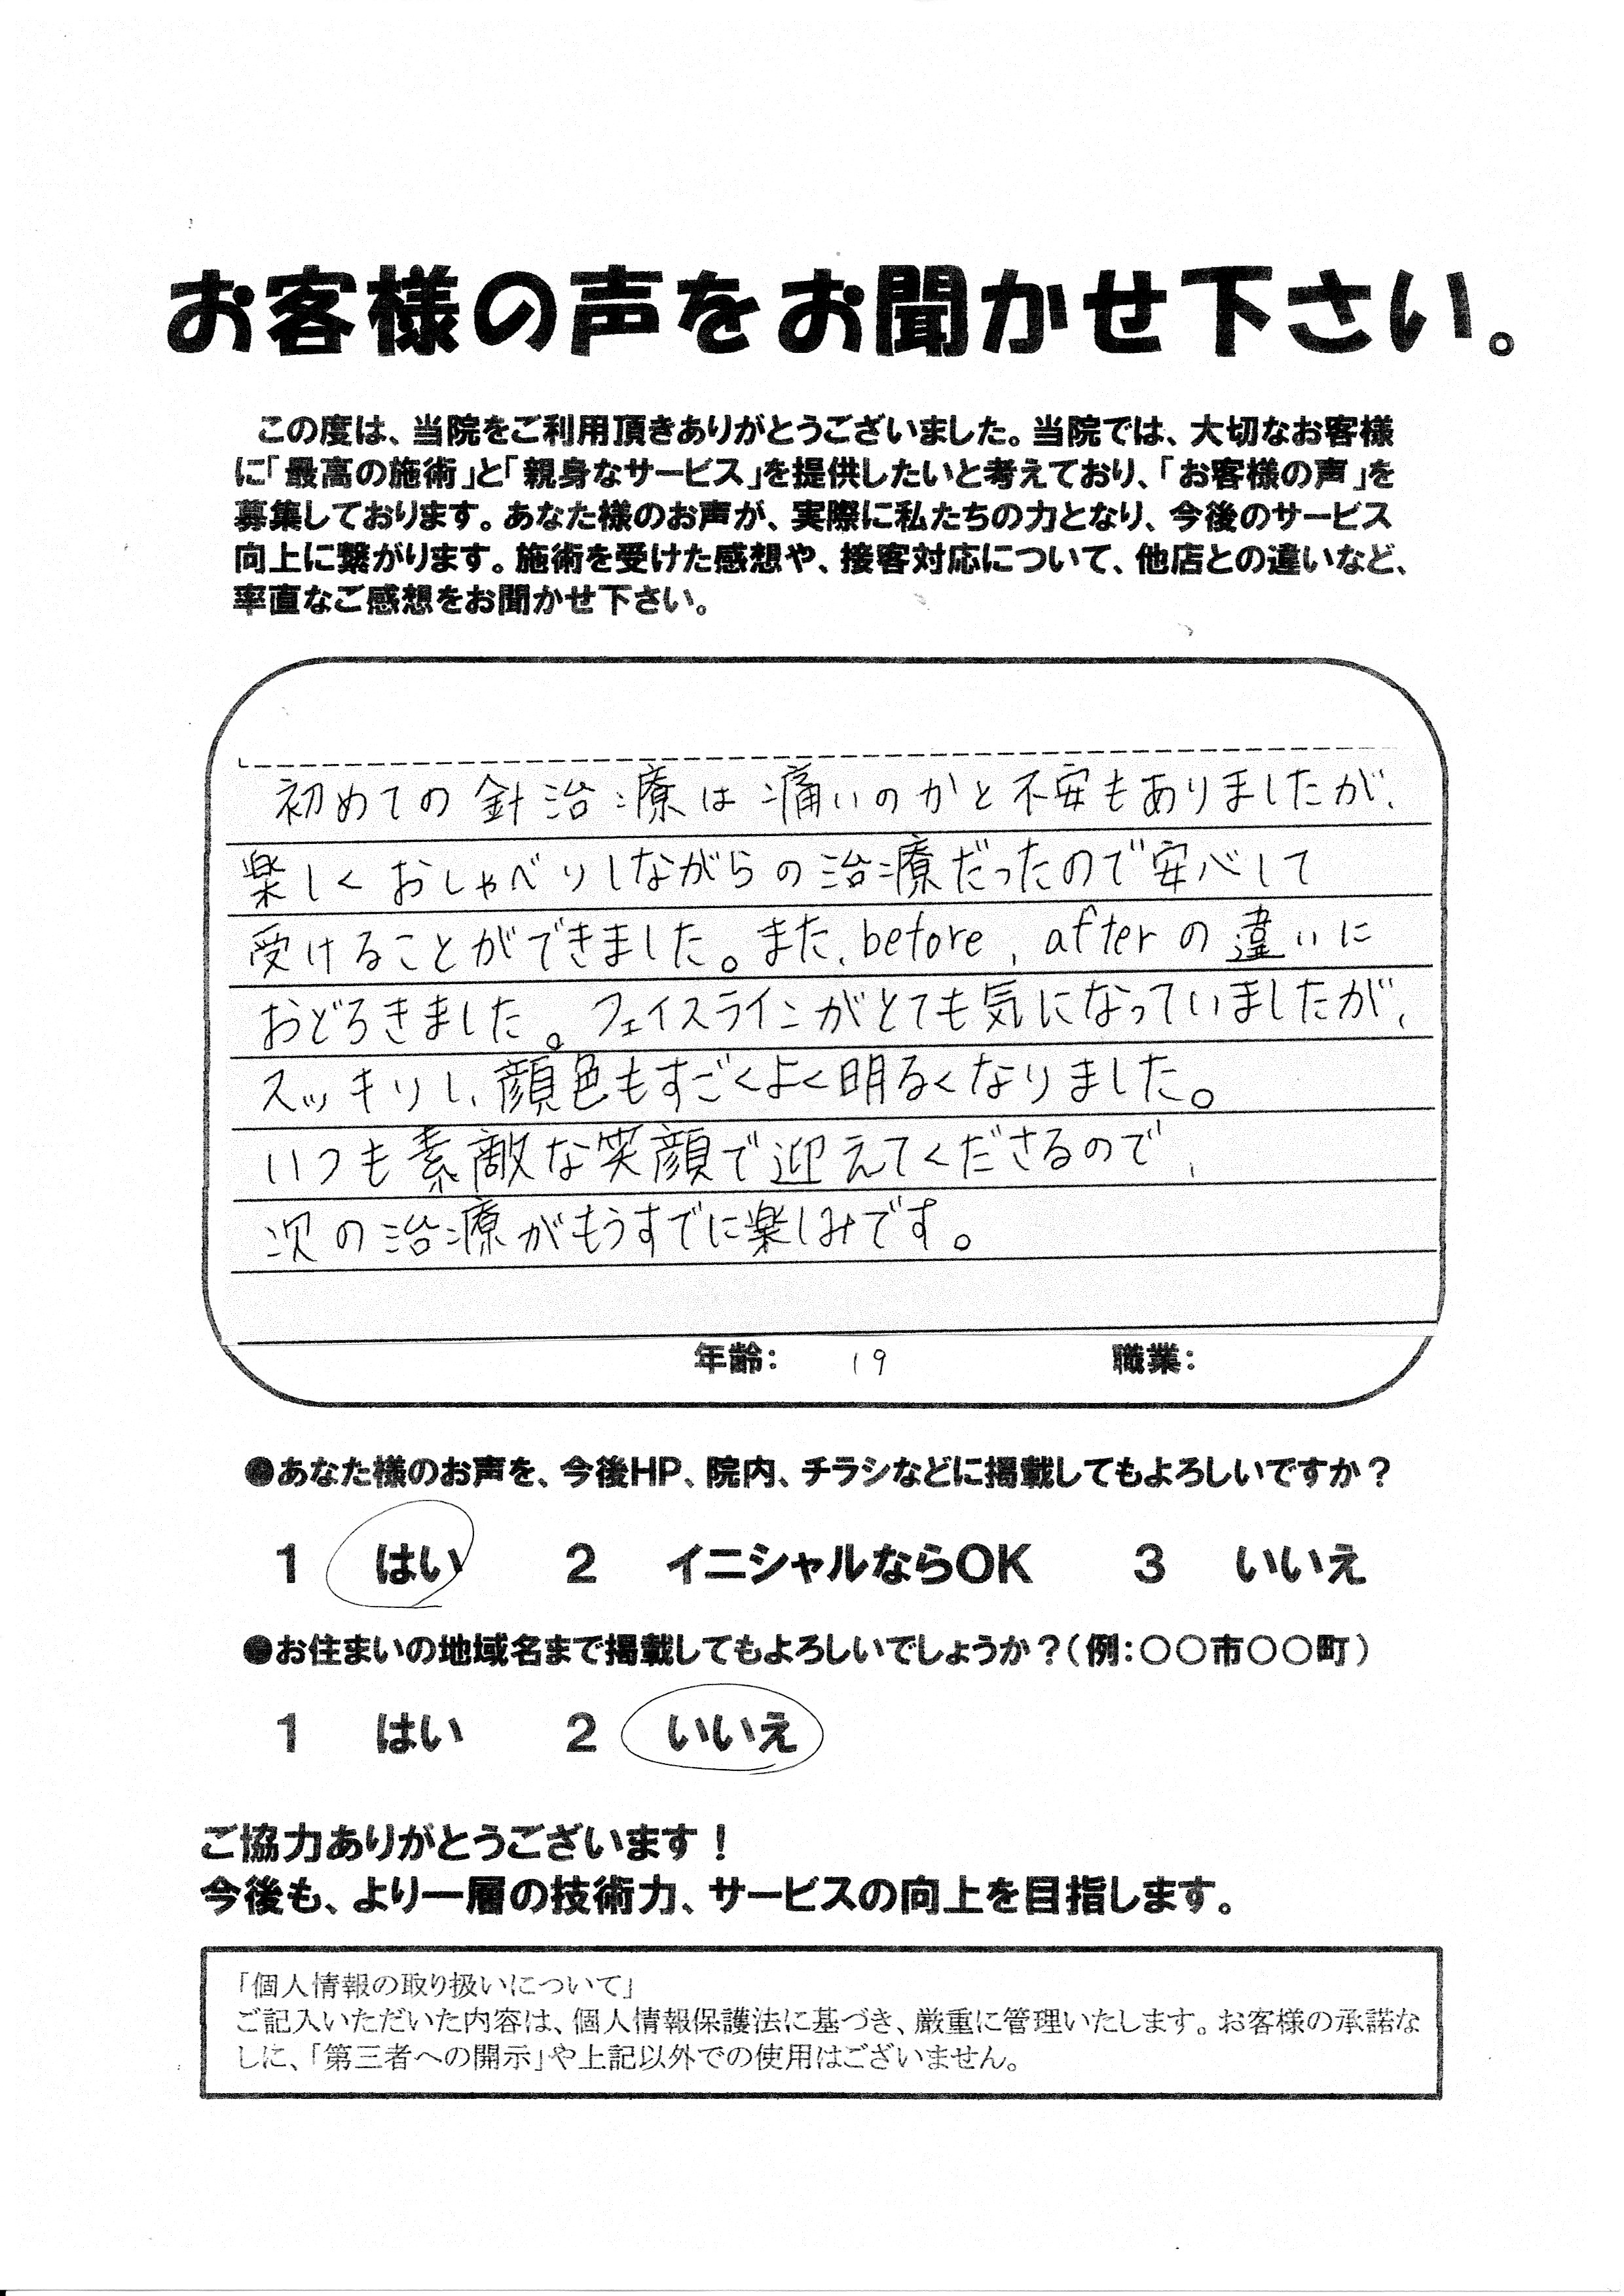 お客様の声をお聞かせ下さい。
この度は、当院をご利用頂きありがとうございました。当院では、大切なお客様
に「最高の施術」と「親身なサービス」を提供したいと考えており、「お客様の声」を
募集しております。あなた様のお声が、実際に私たちの力となり、今後のサービス
向上に繋がります。施術を受けた感想や、接客対応について、他店との違いなど、
率直なご感想をお聞かせ下さい。
初めての針治療は痛いのかと不安もありましたが、
楽しくおしゃべりしながらの治療だったので安心して
受けることができました。また、before、afterの違いに
おどろきました。フェイスラインがとても気になっていましたが、
スッキリし、顔色もすごくよく明るくなりました。
いつも素敵な笑顔で迎えてくださるので、
次の治療がもうすでに楽しみです。
年齢： 19 職業：
●あなた様のお声を、今後HP、院内、チラシなどに掲載してもよろしいですか？
1 はい 2 イニシャルならOK 3 いいえ
●お住まいの地域名まで掲載してもよろしいでしょうか？（例：〇〇市〇〇町）
1 はい 2 いいえ
ご協力ありがとうございます！
今後も、より一層の技術力、サービスの向上を目指します。
「個人情報の取り扱いについて」
ご記入いただいた内容は、個人情報保護法に基づき、厳重に管理いたします。お客様の承諾な
しに、「第三者への開示」や上記以外での使用はございません。